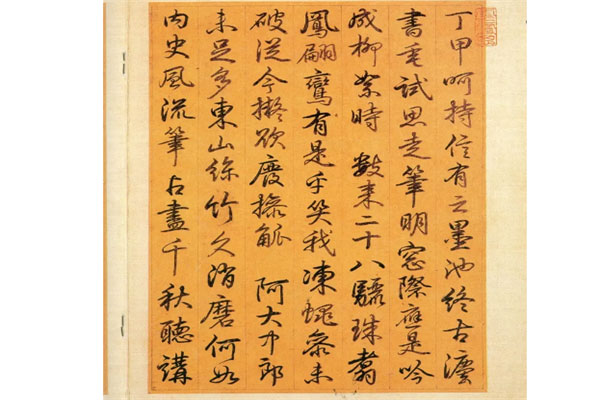 丁甲呵持信有之墨池終古灋
書垂試思走筆明窗際應是吟
成柳絮時 數來二十八驪珠翥
鳳翩鸞有是乎笑我凍蠅參未
破從今擬欲廢操觚 阿大中郎
未足多東山絲竹久消磨何如
內史風流筆占盡千秋聽講